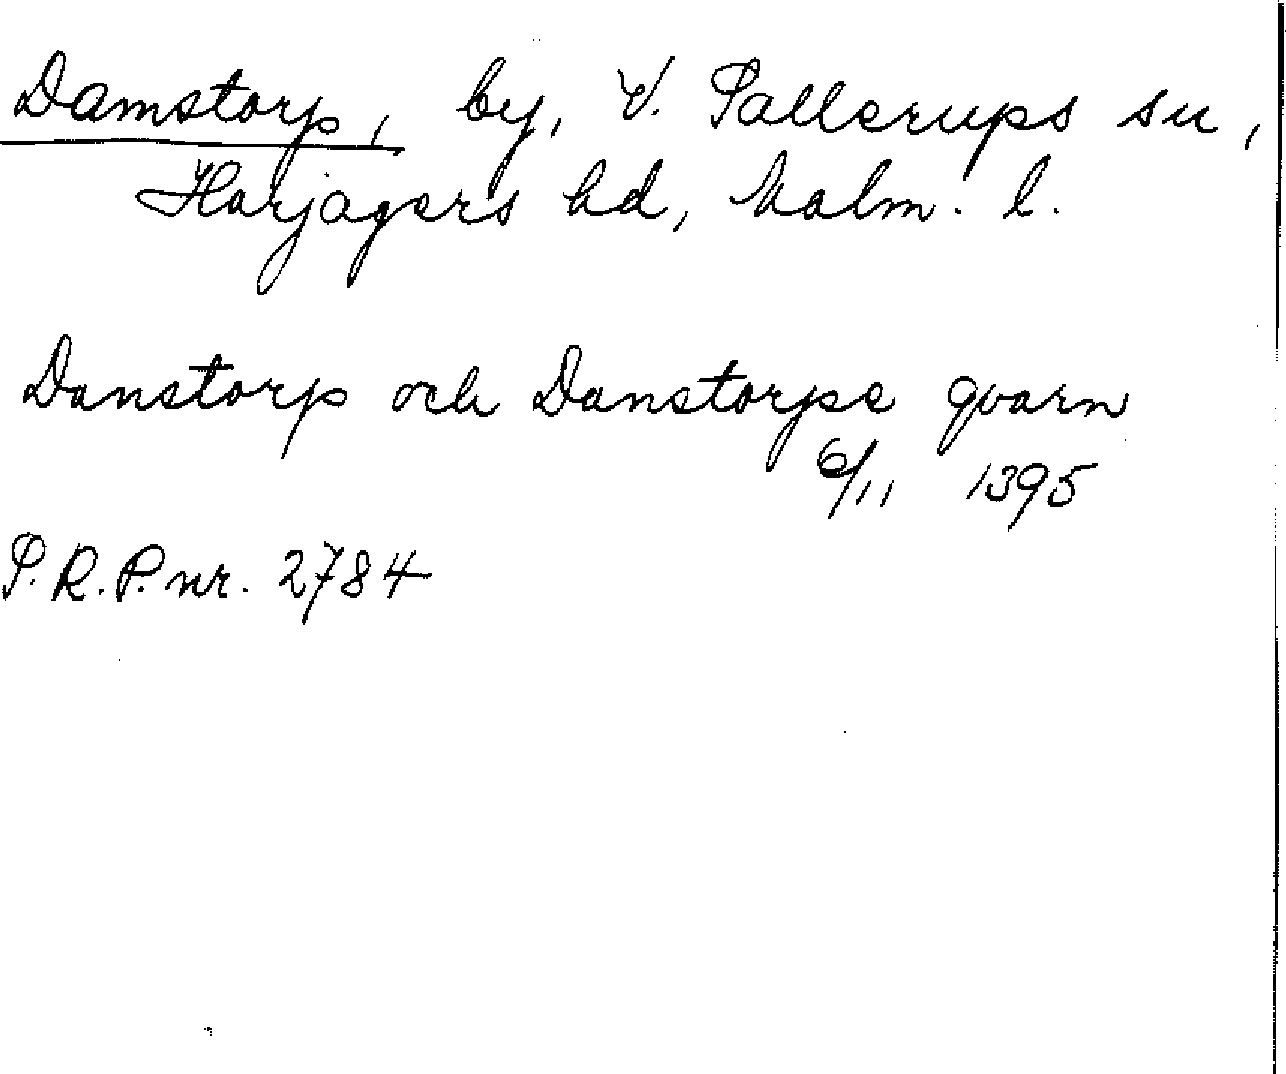 Damstorp, by, V. Sallerups sn,
Harjagers hd, Malm. l.
Danstorp och Danstorps qvarn
6/11 1395
S.R.P. nr. 2784